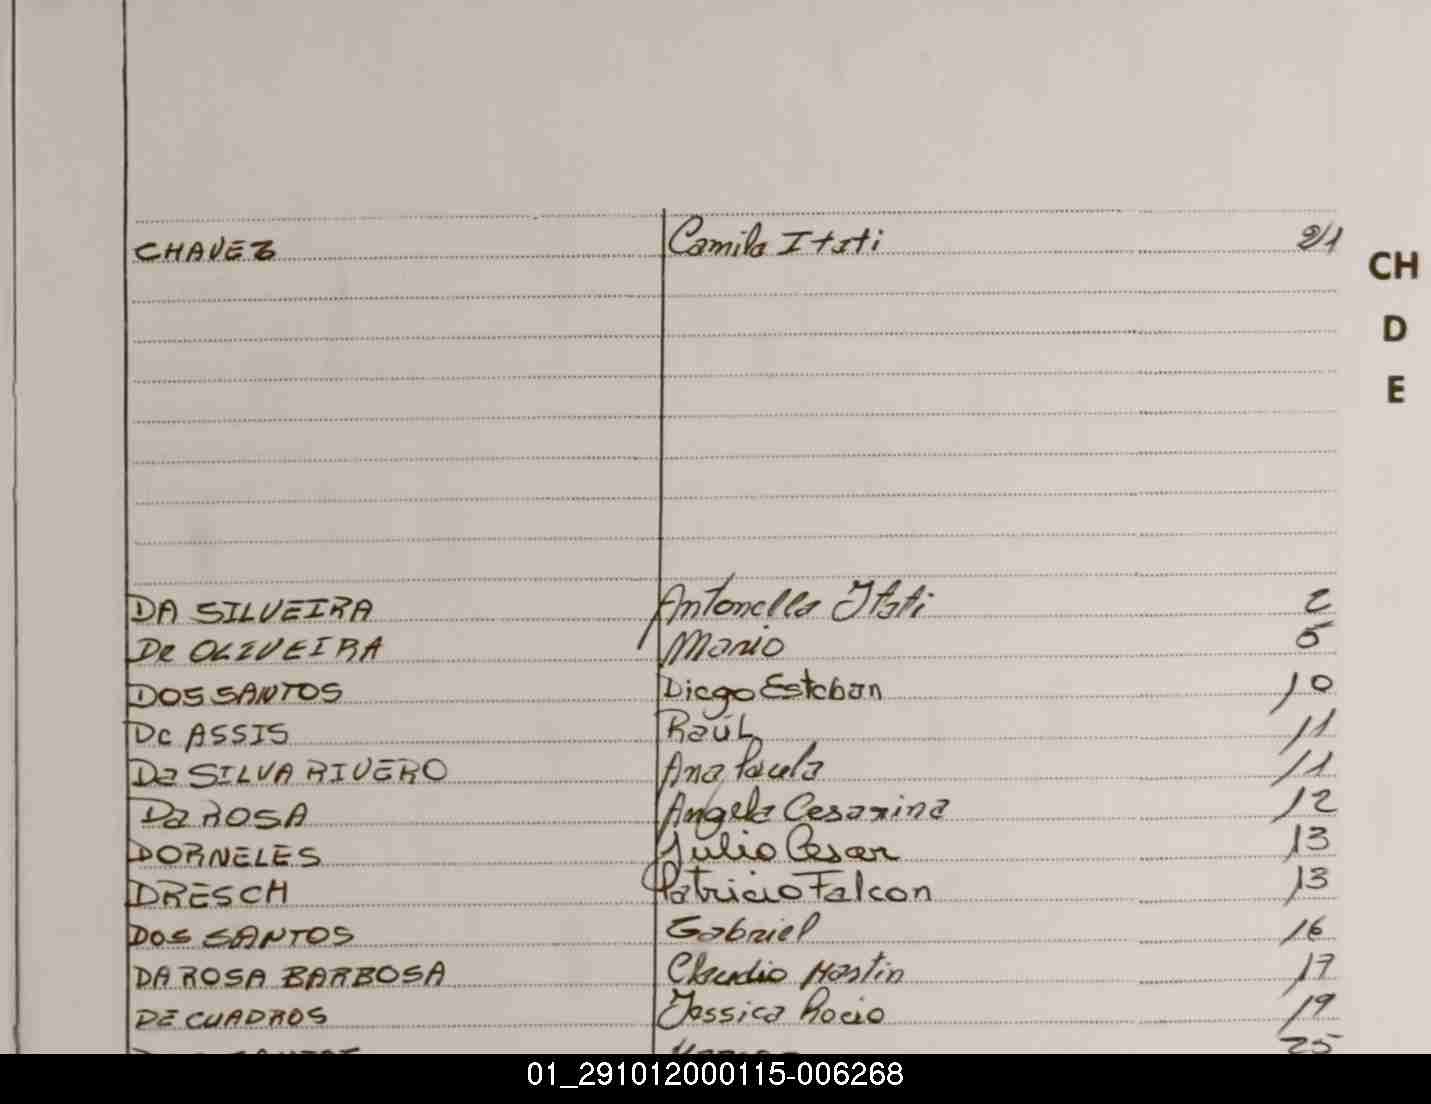 CHAVEZ Camila Itati 21
CH
D
E
DA SILVEIRA Antonella Itati 2
De OLIVEIRA Mario 5
DOS SANTOS Diego Esteban 10
De ASSIS RaúL 11
Da SILVA RIVERO Ana Paula 11
Da ROSA Angela Cesarina 12
DORNELES Julio Cesar 13
DRESCH Patricio Falcon 13
Dos SANTOS Gabriel 16
DA ROSA BARBOSA Claudio Martin 17
DE CUADROS Jessica Rocio 19
25
01_291012000115-006268